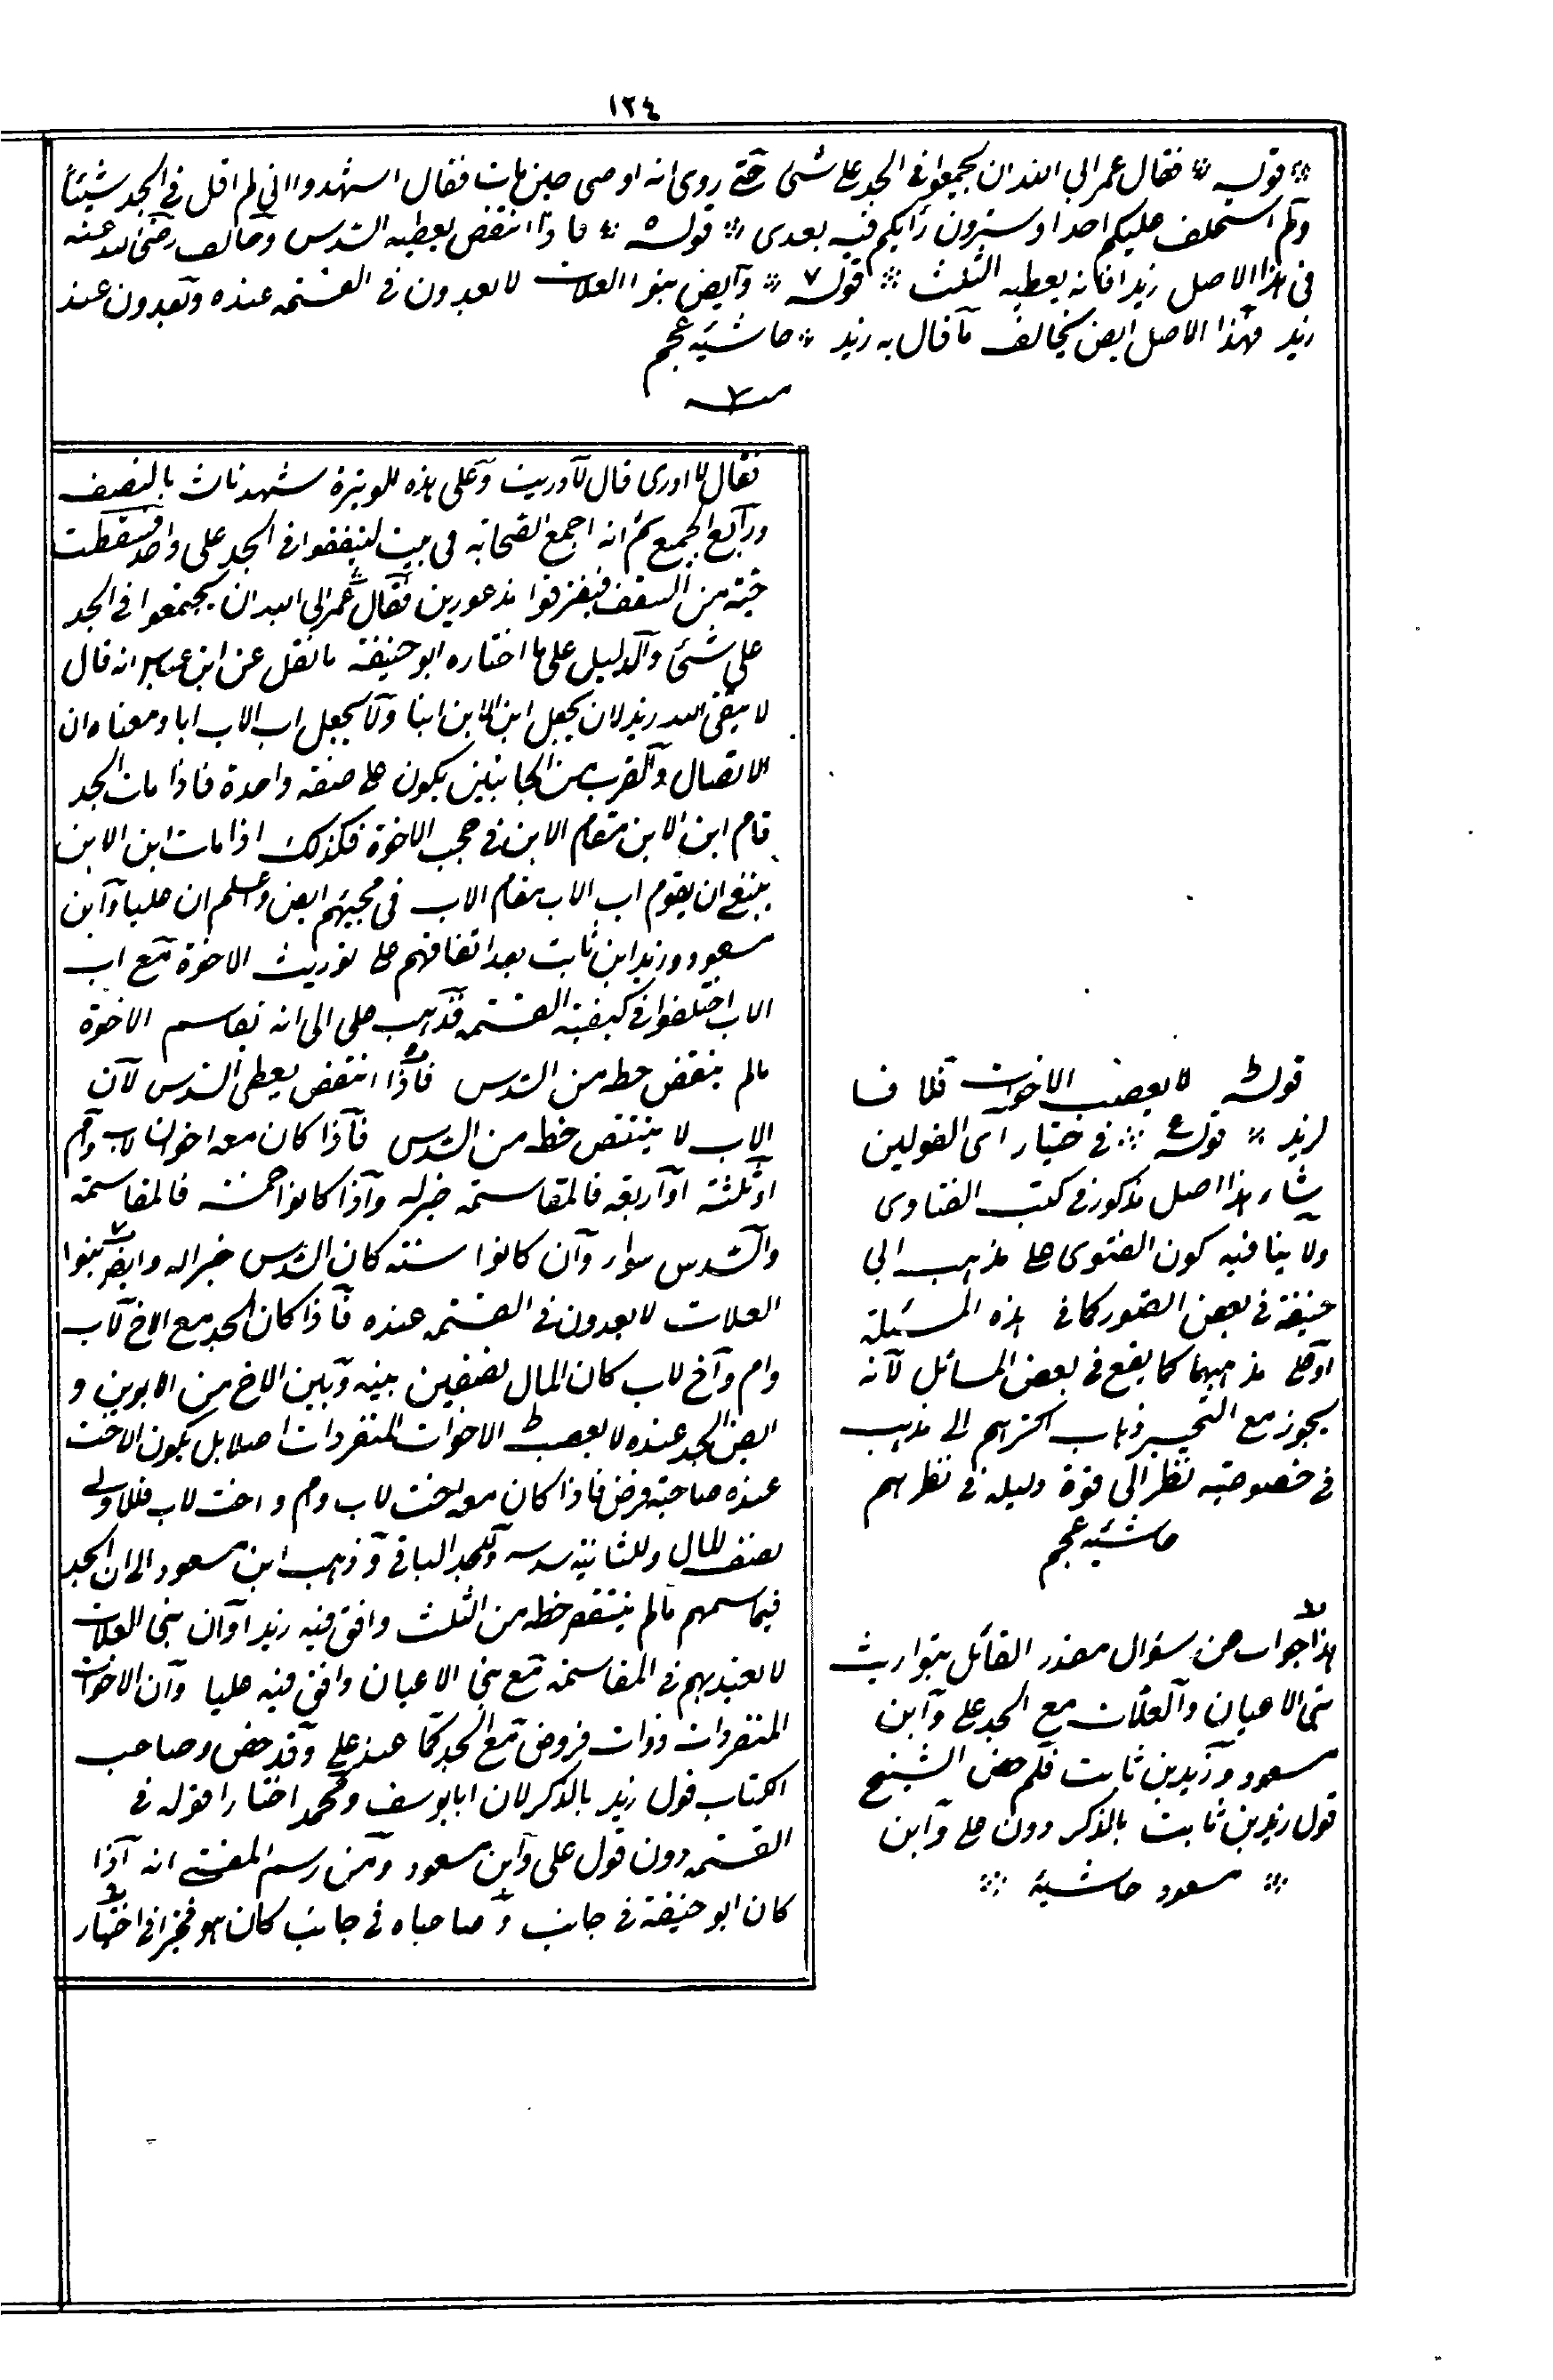 ١٢٤
قوله فقال عمر ابى الله ان يجمعوا فى الجد على شئ حتى روى انه اوصى حين مات فقال اشهدوا انى لم اقل فى الجد شيئا
ولم استخلف عليكم احدا وسترون رأيكم فيه بعدى قوله فاذا انتقص يعطيه السدس وخالف رضى الله عنه
فى هذا الاصل زيدا فانه يعطيه الثلث قوله ٧ وايض بنوا العلات لا يعدون فى القسمة عنده ويعدون عند
زيد فهذا الاصل ايض يخالف ما قال به زيد حاشيه عجم
فقال لا ادرى قال لا دريت وعلى هذه الوتيرة شهد ثالث بالنصف
ورابع بالجميع ثم انه اجمع الصحابة فى بيت ليتفقوا فى الجد على واحد فسقطت
حية من السقف فتفرقوا مذعورين فقال عمر ابى الله ان يجتمعوا فى الجد
على شئ والدليل على ما اختاره ابو حنيفة ما نقل عن ابن عباس انه قال
لا يتقى الله زيد لان يجعل ابن الابن ابنا ولا يجعل اب الاب ابا ومعناه ان
الاتصال والقرب من الجانبين يكون على صفة واحدة فاذا مات الجد
قام ابن الابن مقام الابن فى حجب الاخوة فكذلك اذا مات ابن الابن
ينبغى ان يقوم اب الاب مقام الاب فى حجبهم ايض واعلم ان عليا وابن
مسعود وزيد ابن ثابت بعد اتفاقهم على توريث الاخوة مع اب
الاب اختلفوا فى كيفية القسمة فذهب على الى انه يقاسم الاخوة
مالم ينقص حظه من السدس فاذا انتقص يعطى السدس لان
الاب لا ينتقص حظه من السدس فاذا كان معه اخوان لاب وام
او ثلثة او اربعة فالمقاسمة خير له واذا كانوا خمسة فالمقاسمة
والسدس سواء وان كانوا ستة كان السدس خيرا له وايض بنوا
العلات لا يعدون فى القسمة عنده فاذا كان الجد مع الاخ لاب
وام واخ لاب كان المال نصفين بينه وبين الاخ من الابوين و
ايض الجد عنده لا يعصب الاخوات المنفردات اصلا بل يكون الاخت
عنده صاحبة فرض فاذا كان معه اخت لاب وام واخت لاب فللاولى
نصف المال وللثانية سدسه وللجد الباقى وذهب ابن مسعود الى ان الجد
فيقاسمهم مالم ينتقص حظه من الثلث وافق فيه زيدا وان بنى العلات
لا يعتد بهم فى المقاسمة مع بنى الاعيان وافق فيه عليا وان الاخوات
المنفردات ذوات فروض مع الجد كما عند على وقد خص وصاحب
الكتاب قول زيد بالذكر لان ابا يوسف ومحمد اختارا قوله فى
القسمة دون قول على وابن مسعود ومن رسم المفتى انه اذا
كان ابو حنيفة فى جانب وصاحباه فى جانب كان هو مخيرا فى اختيار
قوله لا يعصب الاخوات خلافا
لزيد قوله فى اختيار اى القولين
شاء هذا اصل مذكور فى كتب الفتاوى
ولا ينافيه كون الفتوى على مذهب ابى
حنيفة فى بعض الصور كما فى هذه المسئلة
او على مذهبهما كما يقع فى بعض المسائل لانه
يجوز مع التخيير ذهاب اكثرهم الى مذهب
فى خصوصية نظرا الى قوة دليله فى نظرهم
حاشيه عجم
هذا جواب عن سؤال مقدر القائل بتوارث
بنى الاعيان والعلات مع الجد على وابن
مسعود وزيد بن ثابت فلم خص الشيخ
قول زيد بن ثابت بالذكر دون على وابن
مسعود حاشيه